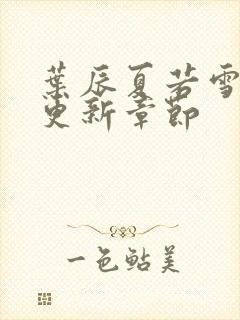 葉辰夏若雪
更新章節
一色鮎美